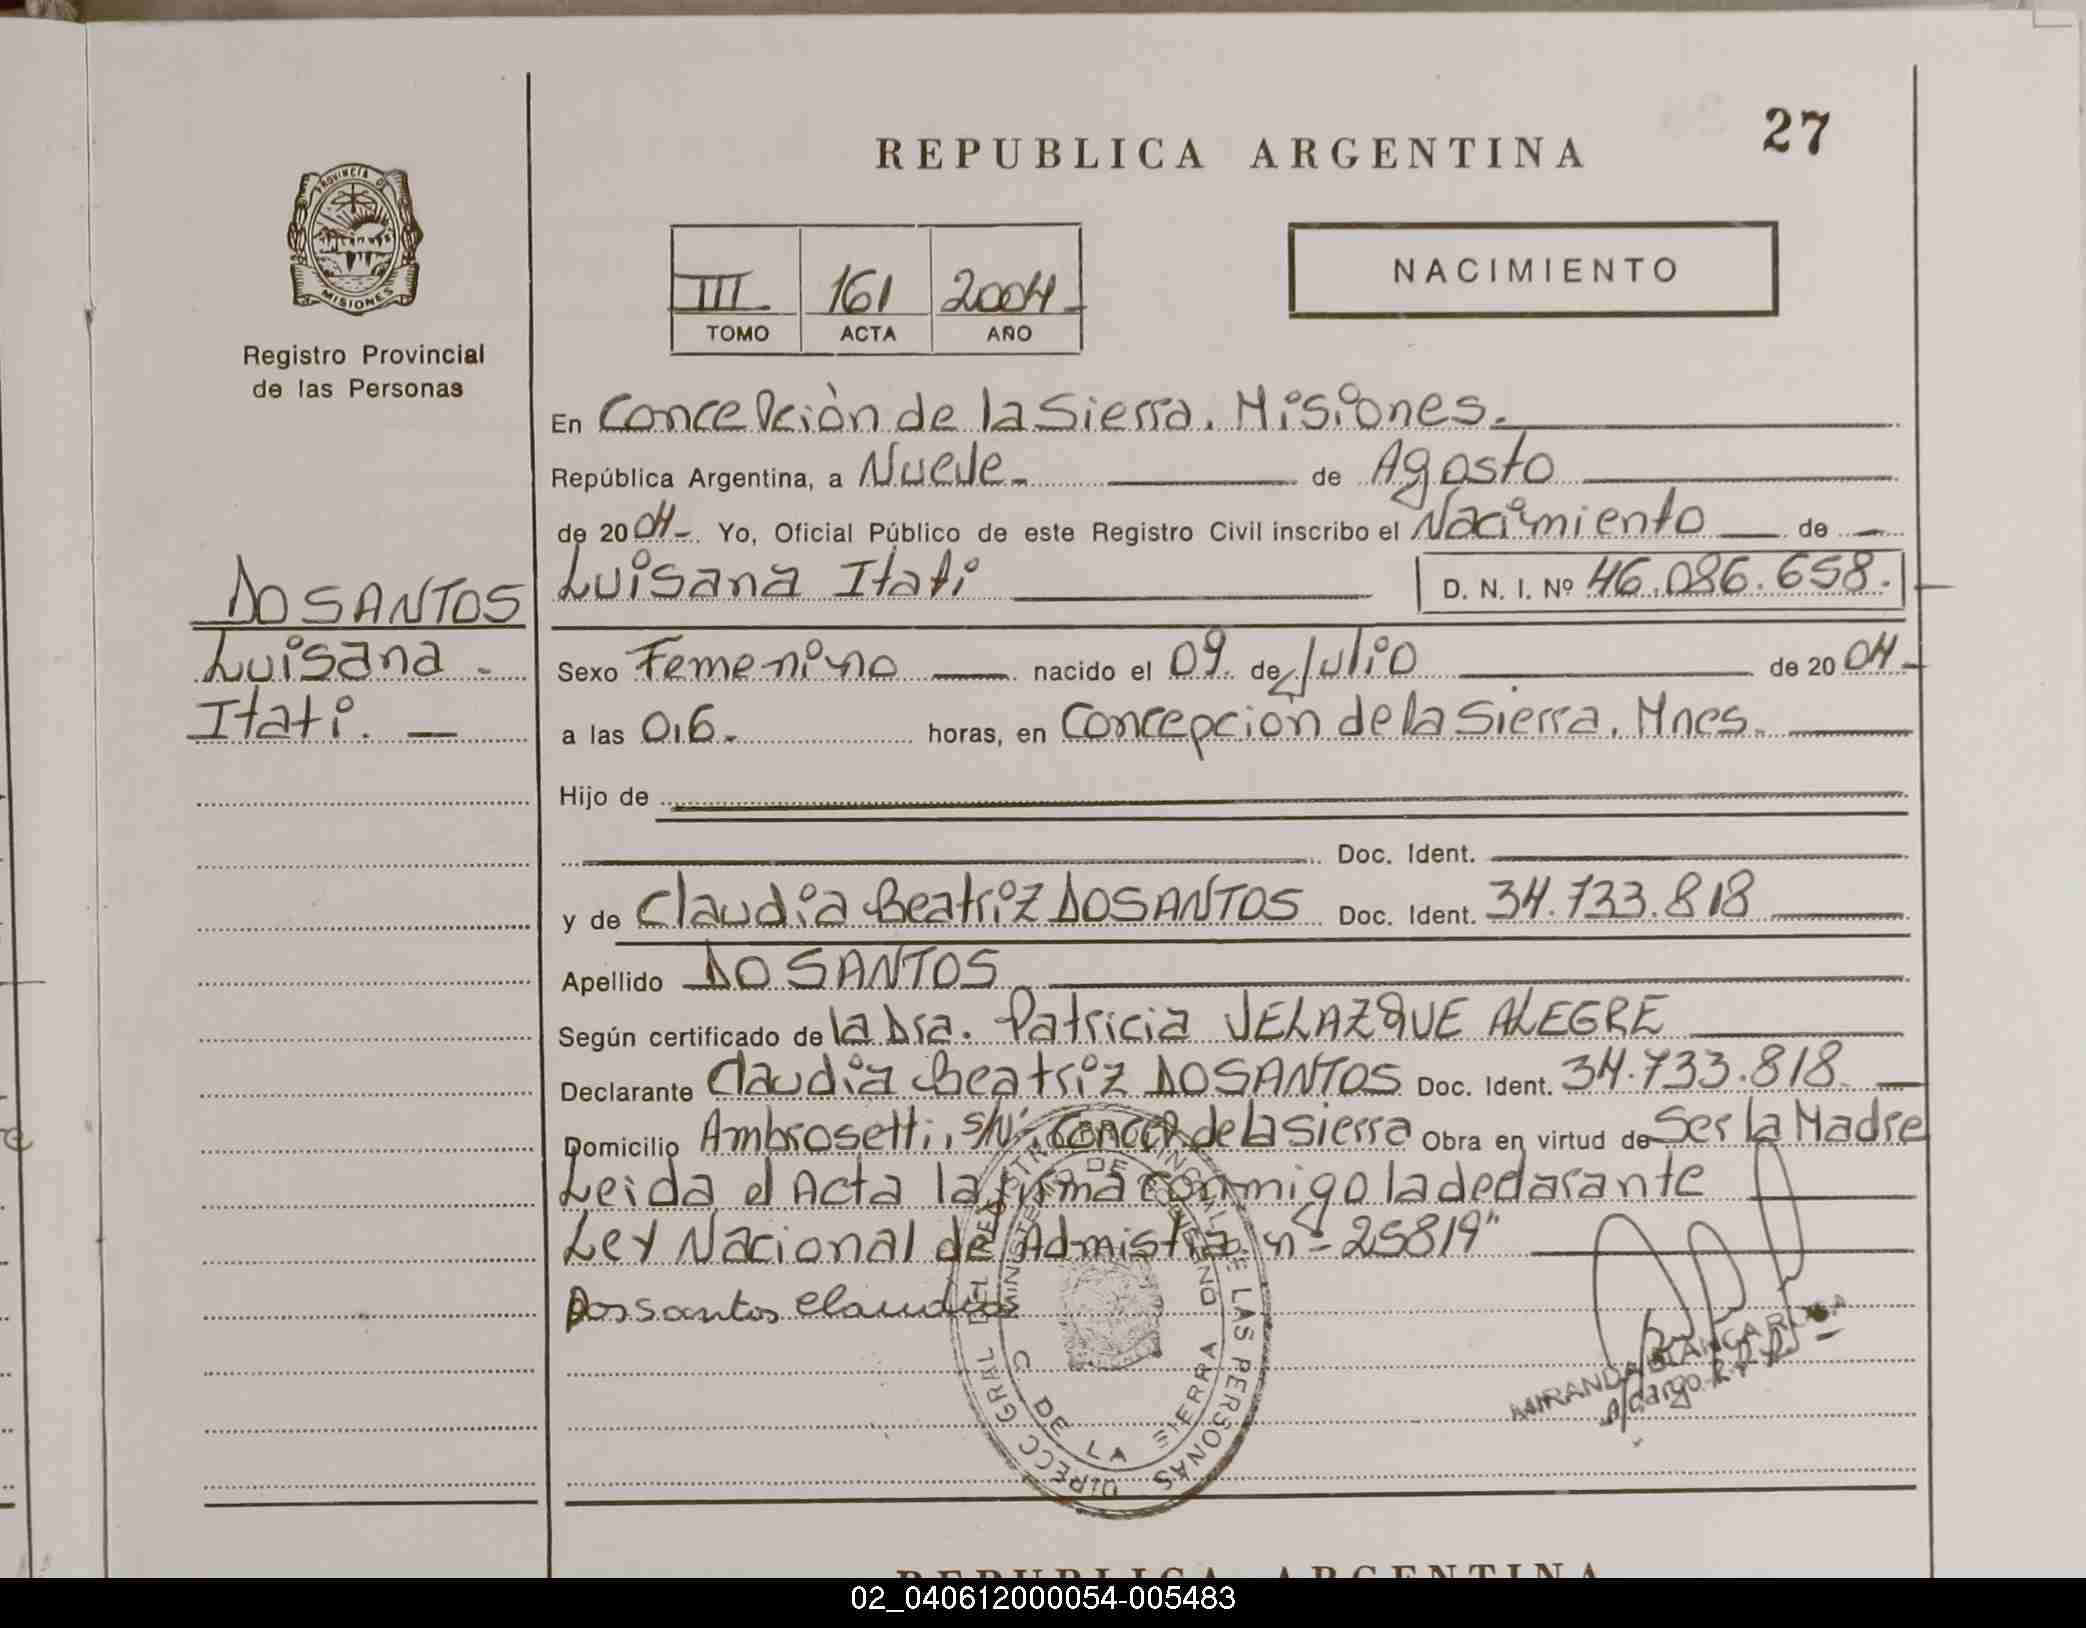 REPUBLICA ARGENTINA
27
PROVINCIA DE
MISIONES
Registro Provincial
de las Personas
III 161 2004
TOMO ACTA AÑO
NACIMIENTO
En Concepción de la Sierra, Misiones.
República Argentina, a Nueve de Agosto
de 2004 Yo, Oficial Público de este Registro Civil inscribo el Nacimiento de
Luisana Itati D. N. I. Nº 46.086.658.
DO SANTOS
Luisana
Itati.
Sexo Femenino nacido el 09 de Julio de 2004
a las 0,6 horas, en Concepcion de la Sierra, Mnes.
Hijo de
Doc. Ident.
y de Claudia Beatriz DOSANTOS Doc. Ident. 34.733.818
Apellido DO SANTOS
Según certificado de la Dra. Patricia VELAZQUE ALEGRE
Declarante Claudia Beatriz DOSANTOS Doc. Ident. 34.733.818
Domicilio Ambrosetti, S/N, Concep de la Sierra Obra en virtud de Ser la Madre
Leida el Acta la firma conmigo la declarante
Ley Nacional de Admistra. nº 25819"
Dos Santos Claudia
DIRECC GRAL DEL REGISTRO PROVINCIAL DE LAS PERSONAS
MINISTERIO DE GOBIERNO
C DE LA SIERRA
MIRANDA BLANCA ROSA
A/cargo R.P.P.
REPUBLICA ARGENTINA
02_040612000054-005483